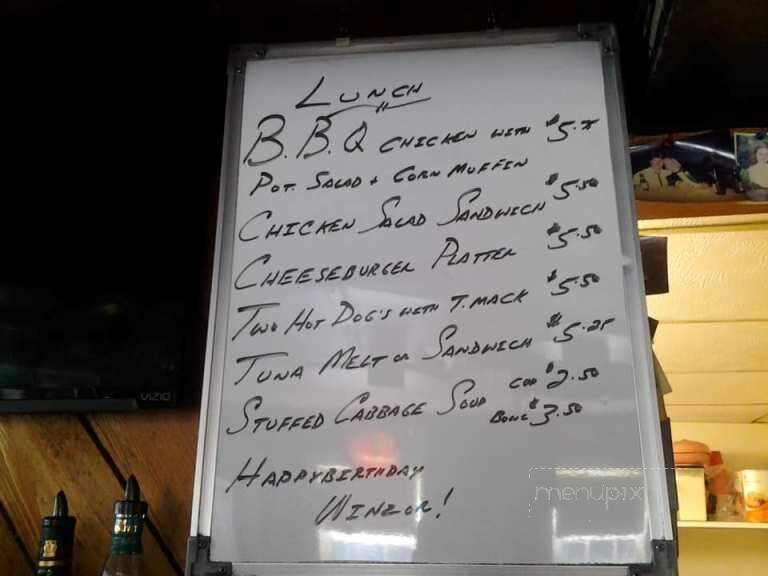 LUNCH
B.B.Q CHICKEN WITH $5.75
POT. SALAD + CORN MUFFIN
CHICKEN SALAD SANDWICH $5.50
CHEESEBURGER PLATTER $5.50
TWO HOT DOG'S WITH T. MACK $5.50
TUNA MELT OR SANDWICH $5.25
STUFFED CABBAGE SOUP CUP $2.50
BOWL $3.50
HAPPYBIRTHDAY
WINZOR!
VIZIO
menupix